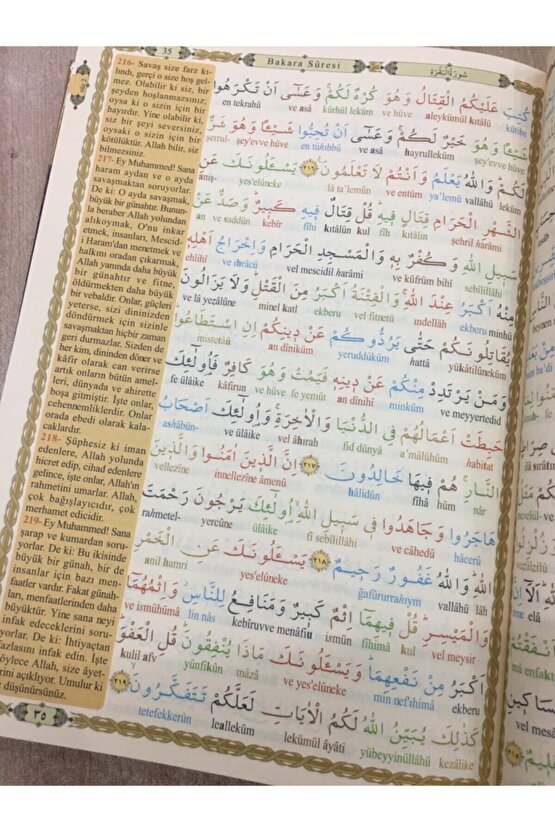 35
Bakara Sûresi
سُورَةُ الْبَقَرَةِ
216- Savaş size farz kı-
lındı, gerçi o size hoş gel-
mez. Olabilir ki siz, bir
şeyden hoşlanmazsınız;
oysa ki o sizin için bir
hayırdır. Yine olabilir ki,
siz bir şeyi seversiniz,
oysaki o sizin için bir
kötülüktür. Allah bilir, siz
bilmezsiniz.
217- Ey Muhammed! Sana
haram aydan ve o ayda
savaşmaktan soruyorlar.
De ki: O ayda savaşmak,
büyük bir günahtır. Bunun-
la beraber Allah yolundan
alıkoymak, O'nu inkar
etmek, insanları, Mescid-i
Haram'dan menetmek ve
halkını oradan çıkarmak,
Allah yanında daha büyük
bir günahtır ve fitne,
öldürmekten daha büyük
bir vebaldir. Onlar, güçleri
yeterse, sizi dininizden
döndürmek için sizinle
savaşmaktan hiçbir zaman
geri durmazlar. Sizden de
her kim, dininden döner ve
kâfir olarak can verirse
artık onların bütün amel-
leri, dünyada ve ahirette
boşa gitmiştir. İşte onlar,
cehennemliklerdir. Onlar
orada ebedi olarak kala-
caklardır.
218- Şüphesiz ki iman
edenlere, Allah yolunda
hicret edip, cihad edenlere
gelince, işte onlar, Allah'ın
rahmetini umarlar. Allah,
çok bağışlayıcıdır, çok
merhamet edicidir.
219- Ey Muhammed! Sana
şarap ve kumardan soru-
yorlar. De ki: Bu ikisinde
büyük bir günah, bir de
insanlar için bazı men-
faatler vardır. Fakat günah-
ları, menfaatlerinden daha
büyüktür. Yine sana neyi
infak edeceklerini soru-
yorlar. De ki: İhtiyaçtan
fazlasını infak edin. İşte
böylece Allah, size âyet-
lerini açıklıyor. Umulur ki
düşünürsünüz.
كُتِبَ عَلَيْكُمُ الْقِتَالُ وَهُوَ كُرْهٌ لَكُمْ وَعَسٰٓى اَنْ تَكْرَهُوا
kütibe aleykümül kıtâlü ve hüve kürhül leküm ve asâ en tekrahû
شَيْـًٔا وَهُوَ خَيْرٌ لَكُمْ وَعَسٰٓى اَنْ تُحِبُّوا شَيْـًٔا وَهُوَ شَرٌّ
şey'evve hüve hayrulleküm ve asâ en tühıbbû şey'evve hüve şerrul
لَكُمْ وَاللّٰهُ يَعْلَمُ وَاَنْتُمْ لَا تَعْلَمُونَ ﴿٢١٦﴾ يَسْـَٔلُونَكَ عَنِ
leküm vallâhü ya'lemü ve entüm lâ ta'lemûn yes'elûneke aniş
الشَّهْرِ الْحَرَامِ قِتَالٍ فِيهِ قُلْ قِتَالٌ فِيهِ كَبِيرٌ وَصَدٌّ عَنْ
şehril harâmi kıtâlin fîhi kul kıtâlün fîhi kebîr ve saddün an
سَبِيلِ اللّٰهِ وَكُفْرٌ بِهِ وَالْمَسْجِدِ الْحَرَامِ وَاِخْرَاجُ اَهْلِهِ
sebîlillâhi ve küfrüm bihî vel mescidil harâmi ve ihrâcü ehlihî
مِنْهُ اَكْبَرُ عِنْدَ اللّٰهِ وَالْفِتْنَةُ اَكْبَرُ مِنَ الْقَتْلِ وَلَا يَزَالُونَ
minhü ekberu ındellâh vel fitnetü ekberu minel katl ve lâ yezâlûne
يُقَاتِلُونَكُمْ حَتّٰى يَرُدُّوكُمْ عَنْ دِينِكُمْ اِنِ اسْتَطَاعُوا
yükâtilûneküm hattâ yerüddûküm an dîniküm inistetâû
وَمَنْ يَرْتَدِدْ مِنْكُمْ عَنْ دِينِهِ فَيَمُتْ وَهُوَ كَافِرٌ فَاُولٰٓئِكَ
ve meyyertedid minküm an dînihî fe yemüt ve hüve kâfirun fe ülâike
حَبِطَتْ اَعْمَالُهُمْ فِي الدُّنْيَا وَالْاٰخِرَةِ وَاُولٰٓئِكَ اَصْحَابُ
habitat a'mâlühüm fid dünyâ vel âhırah ve ülâike ashâbün-
النَّارِ هُمْ فِيهَا خَالِدُونَ ﴿٢١٧﴾ اِنَّ الَّذِينَ اٰمَنُوا وَالَّذِينَ
nâr hüm fîhâ hâlidûn innellezîne âmenû vellezîne
هَاجَرُوا وَجَاهَدُوا فِي سَبِيلِ اللّٰهِ اُولٰٓئِكَ يَرْجُونَ رَحْمَتَ
hâcerû ve câhedû fî sebîlillâhi ülâike yercûne rahmetel-
اللّٰهِ وَاللّٰهُ غَفُورٌ رَحِيمٌ ﴿٢١٨﴾ يَسْـَٔلُونَكَ عَنِ الْخَمْرِ
lâh vallâhü ğafûrurrahıym yes'elûneke anil hamri
وَالْمَيْسِرِ قُلْ فِيهِمَا اِثْمٌ كَبِيرٌ وَمَنَافِعُ لِلنَّاسِ وَاِثْمُهُمَا
vel meysir kul fîhimâ ismün kebîruvve menâfiu lin nâs ve ismühümâ
اَكْبَرُ مِنْ نَفْعِهِمَا وَيَسْـَٔلُونَكَ مَاذَا يُنْفِقُونَ قُلِ الْعَفْوَ
ekberu min nef'ıhimâ ve yes'elûneke mâzâ yünfikûn kulil afv
كَذٰلِكَ يُبَيِّنُ اللّٰهُ لَكُمُ الْاٰيَاتِ لَعَلَّكُمْ تَتَفَكَّرُونَ ﴿٢١٩﴾
kezâlike yübeyyinüllâhü lekümül âyâti lealleküm tetefekkerûn
٣٥